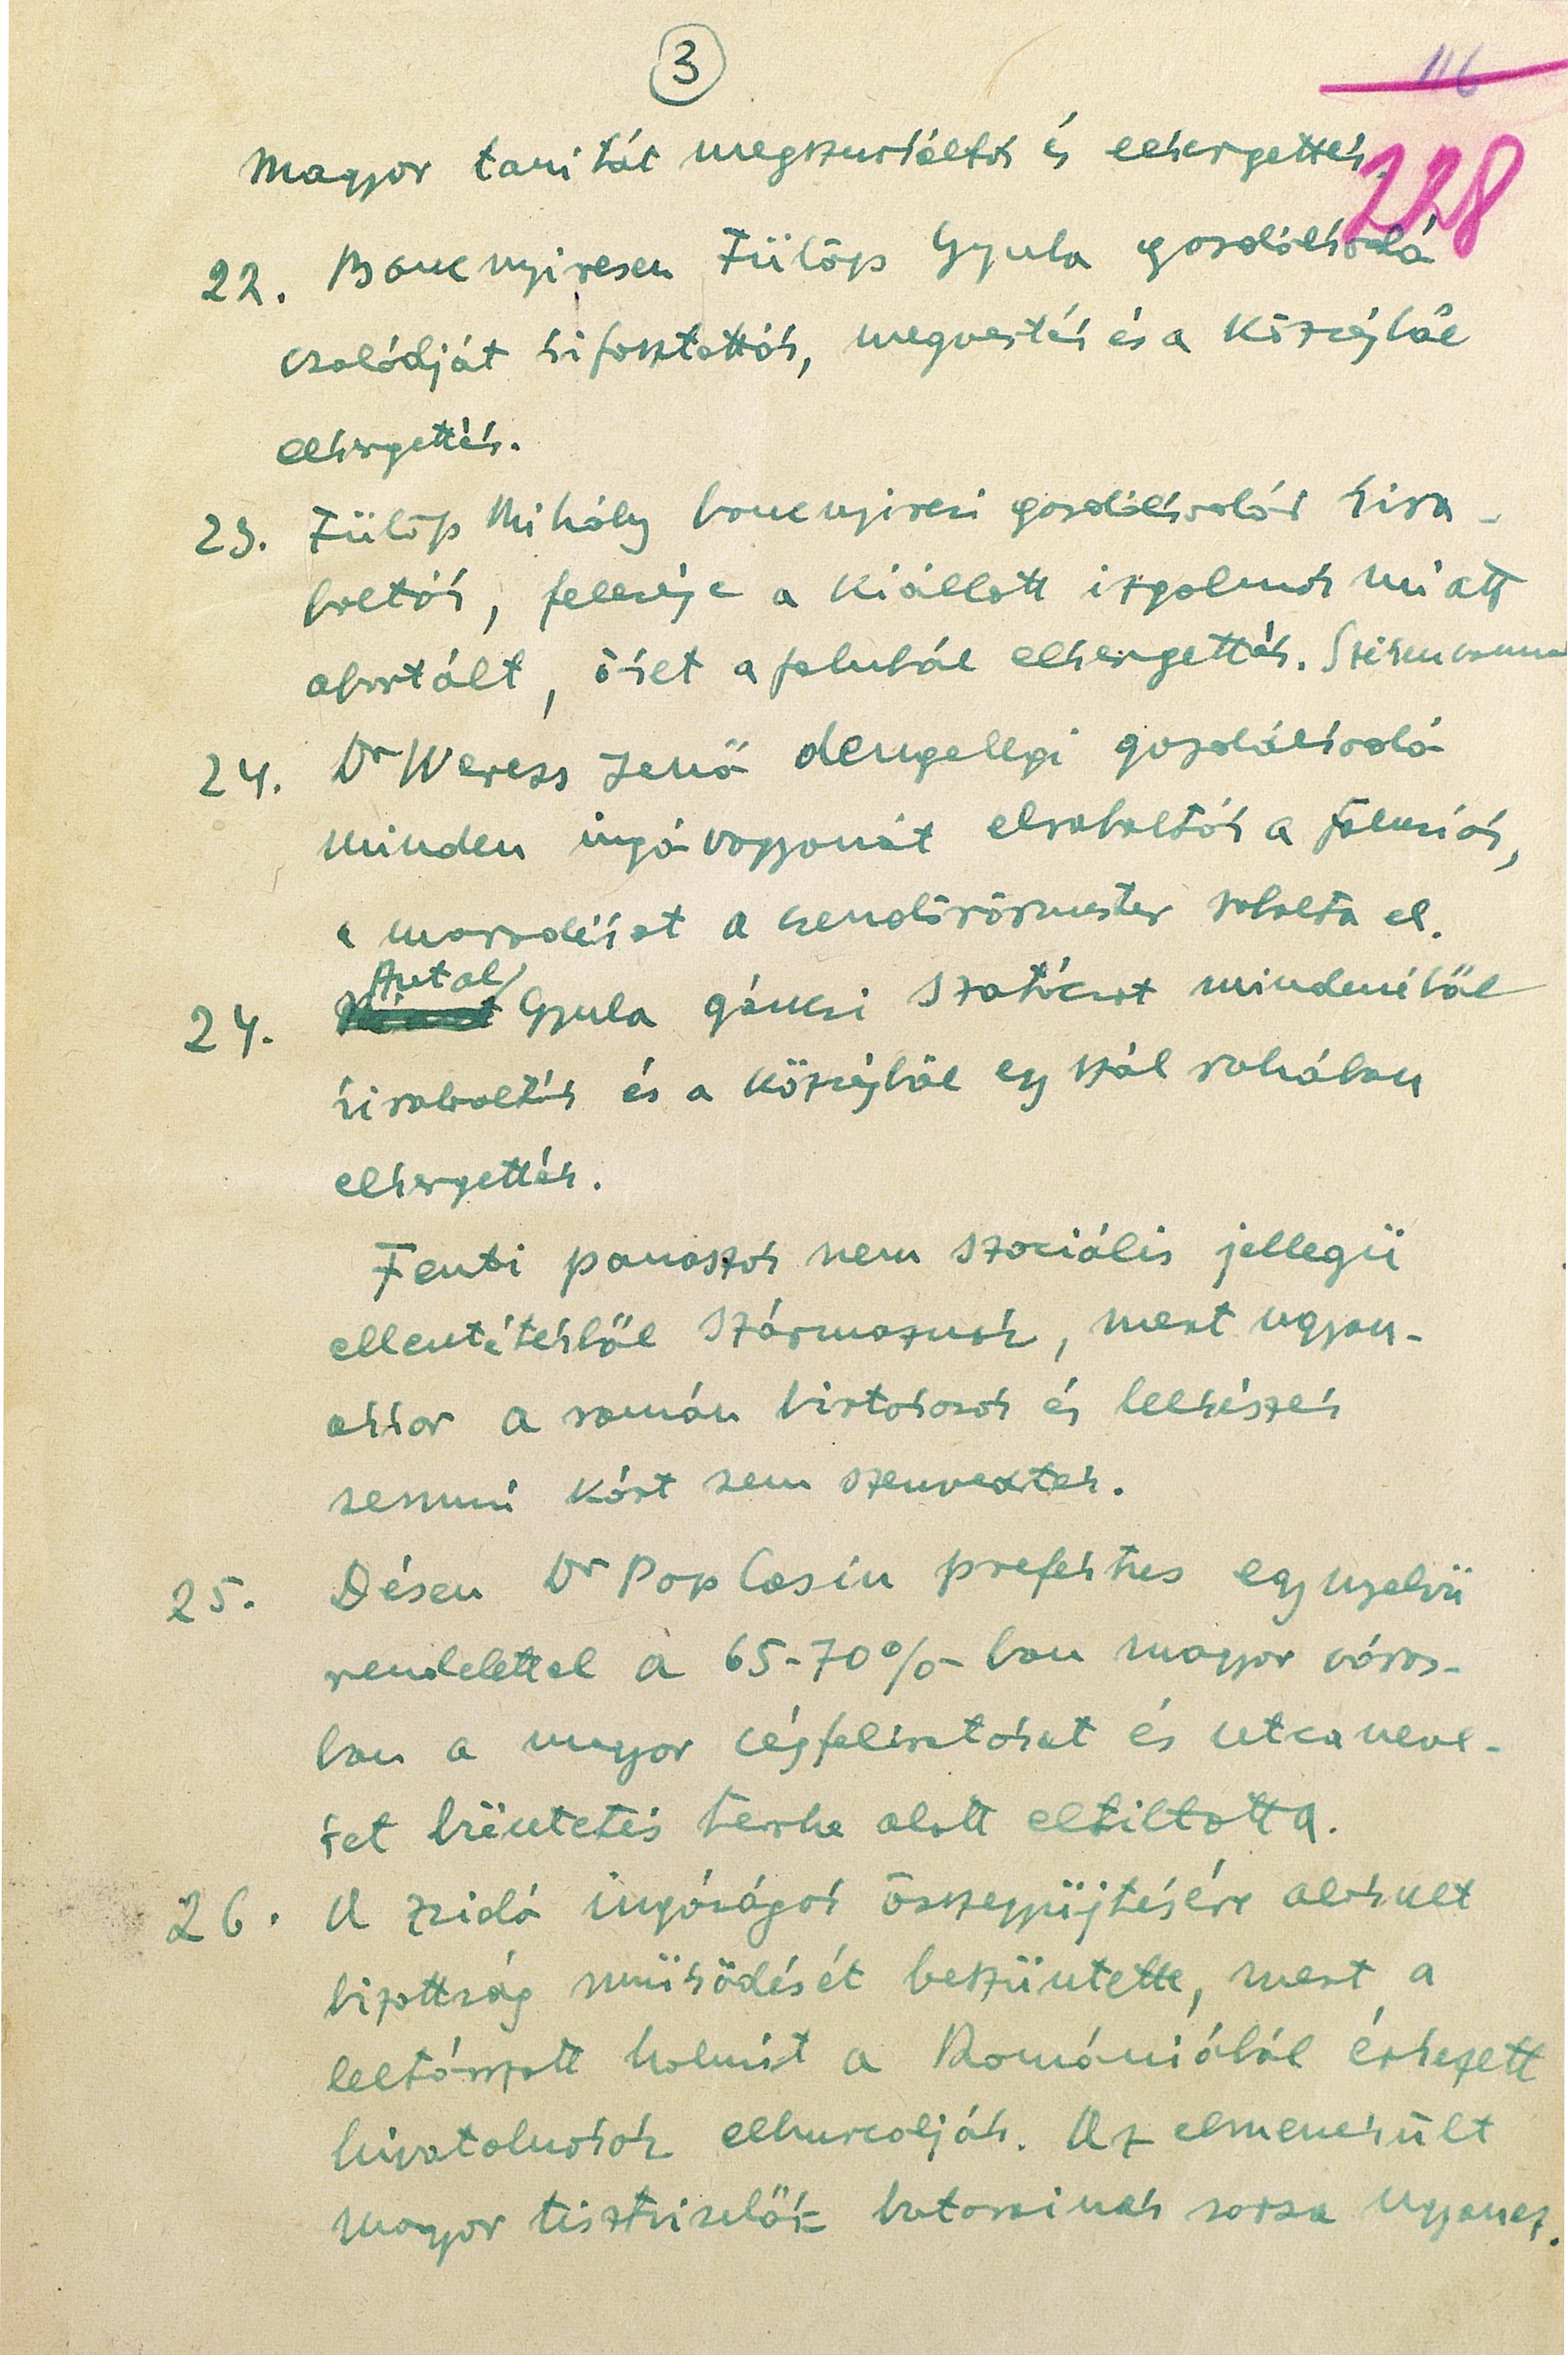 3
116
228
Magyar tanítót megszurkálták és elkergették.
22. Boncnyiresen Fülöp Gyula gazdálkodó
családját kifosztották, megverték és a községből
elkergették.
23. Fülöp Mihály boncnyiresi gazdálkodót kira-
bolták, felesége a kiállott izgalmak miatt
abortált, őket a faluból elkergették.
24. Dr Weress Jenő dengelegi gazdálkodó
minden ingó vagyonát elrabolták a falusiak,
a maradékot a csendőrőrmester rabolta el.
24. Antal Gyula gáncsi szatócsot mindenéből
kirabolták és a községből egy szál ruhában
elkergették.
Fenti panaszok nem szociális jellegü
ellentétekből származnak, mert ugyan-
akkor a román birtokosok és lelkészek
semmi kárt sem szenvedtek.
25. Désen Dr Pop Casiu prefektus egynyelvü
rendelettel a 65-70%-ban magyar város-
ban a magyar cégfeliratokat és utcaneve-
ket büntetés terhe alatt eltiltotta.
26. A zsidó ingóságok összegyüjtésére alakult
bizottság müködését beszüntette, mert a
leltározott holmit a Romániából érkezett
hivatalnokok elhurcolják. Az elmenekült
magyar tisztviselők butorainak sorsa ugyanez.